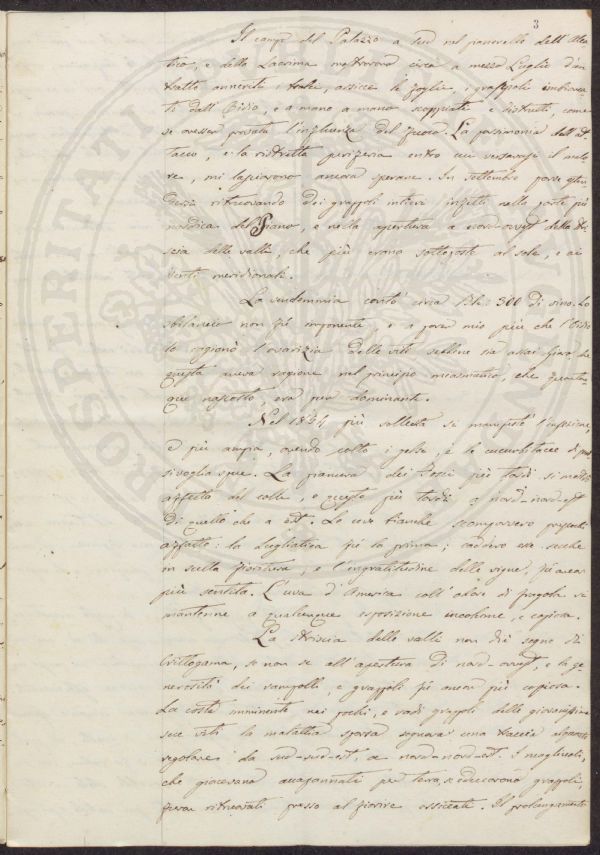 3
Il campo del Palazzo a sud nel pianerello dell'Alea-
tico, e della Lacrima mostrarono circa a mezzo Luglio d'un
tratto annerite i tralci, assicce le foglie, i grappoli imbianca-
ti dall'Oidio, e a mano a mano scoppiati e distrutti, come
se avessero provata l'influenza del fuoco. La parsimonia dell'at-
tacco, e la ristretta periferia entro cui versavasi il malo-
re, mi lasciarono ancora sperare. In settembre
ritrovando dei grappoli interi infetti nella parte più
nordica del Piano, e nella apertura a nord-ovest della stri-
scia delle valli, che più erano sottoposte al sole, e ai
venti meridionali.
La vendemmia contò circa 300 di vino. Lo
sbilancio non fu imponente, e a parer mio più che l'Oidio
lo cagionò l'avarizia delle viti sebbene sia assai fino, che
questa aveva ragione nel principio che quantun-
que nascosto, era pur dominante.
Nel 1854 più sollecita si manifestò l'infezione,
e più ampia, avendo colto i gelsi, e le cucurbitacee di qual-
sivoglia specie. La pianura dei più tardi si mostrò
affetta del colle, e questo più tardi a nord-nord-est
di quello che a est. Le uve bianche scomparvero pressoché
affatto: la Lugliatica fu la prima; caddero esse secche
in sulla fioritura, e l'ingratitudine delle vigne fu ancor
più sentita. L'uva d'America coll'odore di fragola si
mantenne a qualunque esposizione incolume, e copiosa.
La striscia delle valli non diè segno di
Crittogama, se non se all'apertura di nord-ovest e la ge-
nerosità dei rampolli, e grappoli fu ancor più copiosa.
La costa imminente nei pochi, e radi grappoli delle giovanissime
sue viti la malattia sparsa segnava una traccia
regolare da sud-sud-est, a nord-nord-est. I magliuoli,
che giacevano per terra, se educarono grappoli,
furon ritrovati presso al fiorire essiccati. Il prolungamento